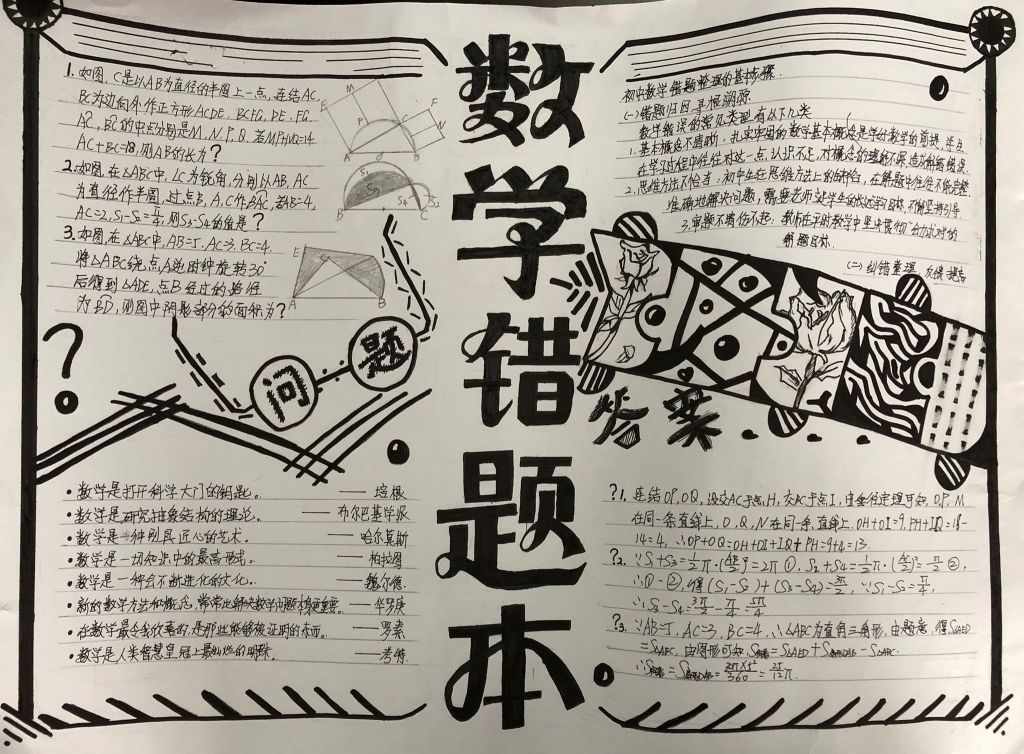 数学错题本
1. 如图，C是以AB为直径的半圆上一点，连结AC，
BC为边向外作正方形ACDE，BCFG，DE，FG，
AC，BC的中点分别是M，N，P，Q，若MP+NQ=14
AC+BC=18，则AB的长为？
2. 如图，在△ABC中，∠C为锐角，分别以AB，AC
为直径作半圆，过点B，A，C作BAC，若AB=4，
AC=2，S1-S2=π/4，则S3-S4的值是？
3. 如图，在△ABC中，AB=5，AC=3，BC=4，
将△ABC绕点A逆时针旋转30°
后得到△ADE，点B经过的路径
为BD，则图中阴影部分的面积为？
E M D P C F N G A O B
S1 S3 S4 S2 B C
E C A B
?
问题
初中数学错题整理的基本步骤
(一)错题归因 寻根溯源
数学错误的常见类型有以下几类
1. 基本概念不清晰：扎实牢固的数学基本概念是学好数学的前提，学生
在学习过程中往往对这一点，认识不足，对概念的理解不深造成解题错误
2. 思维方法不恰当：初中生在思维方法上的
准确地解决问题，需要老师
3. 审题不清 教师在平时教学中
解题目标
(二)纠错整理
答案
• 数学是打开科学大门的钥匙。 —— 培根
• 数学是研究抽象结构的理论。 —— 布尔巴基学派
• 数学是一种别具匠心的艺术。 —— 哈尔莫斯
• 数学是一切知识中的最高形式。 —— 柏拉图
• 数学是一种会不断进化的文化。 —— 魏尔德
• 新的数学方法和概念，常常比解决数学问题本身更重要。 —— 华罗庚
• 在数学最令我欣喜的，是那些能够被证明的东西。 —— 罗素
• 数学是人类智慧皇冠上最灿烂的明珠。 —— 考特
?1. 连结OP，OQ，设交AC于点H，交BC于点I，由垂径定理可知，O，P，M
在同一条直线上，O，Q，N在同一条直线上，OH+OI=9，PH+IQ=18-
14=4，∴OP+OQ=OH+OI+IQ+PH=9+4=13.
?2. ∵S1+S3=½π·(4/2)²=2π ①，S2+S4=½π·(2/2)²=π/2 ②，
∴①-②，得(S1-S2)+(S3-S4)=3π/2，∵S1-S2=π/4，
∴S3-S4=3π/2-π/4=5π/4
?3. ∵AB=5，AC=3，BC=4，∴△ABC为直角三角形，由题意，得S△AED
=S△ABC，由图形可知，S阴影=S△AED+S扇形DAB-S△ABC.
∴S阴影=S扇形DAB=30π×5²/360=25/12π.